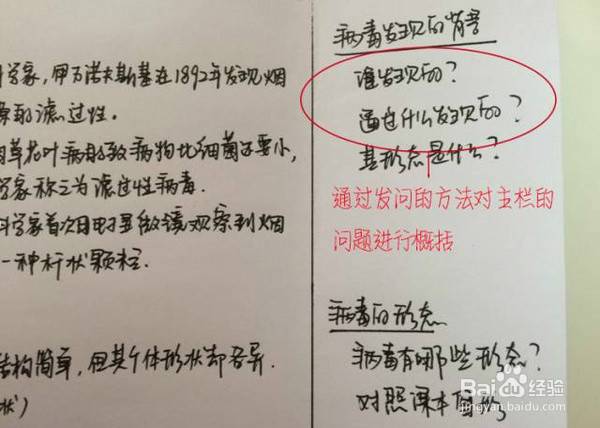 学家,伊万诺夫斯基在1892年发现烟
滤过性。
草花叶病的致病物比细菌还要小,
学家称之为滤过性病毒.
科学家首次用电子显微镜观察到烟
一种杆状颗粒.
结构简单,但其个体形状却各异.
状)
病毒发现的背景
谁发现的?
通过什么发现的?
其形态是什么?
通过发问的方法对主栏的
问题进行概括
病毒的形态
病毒有哪些形态?
对照课本
Baidu经验
jingyan.baidu.com